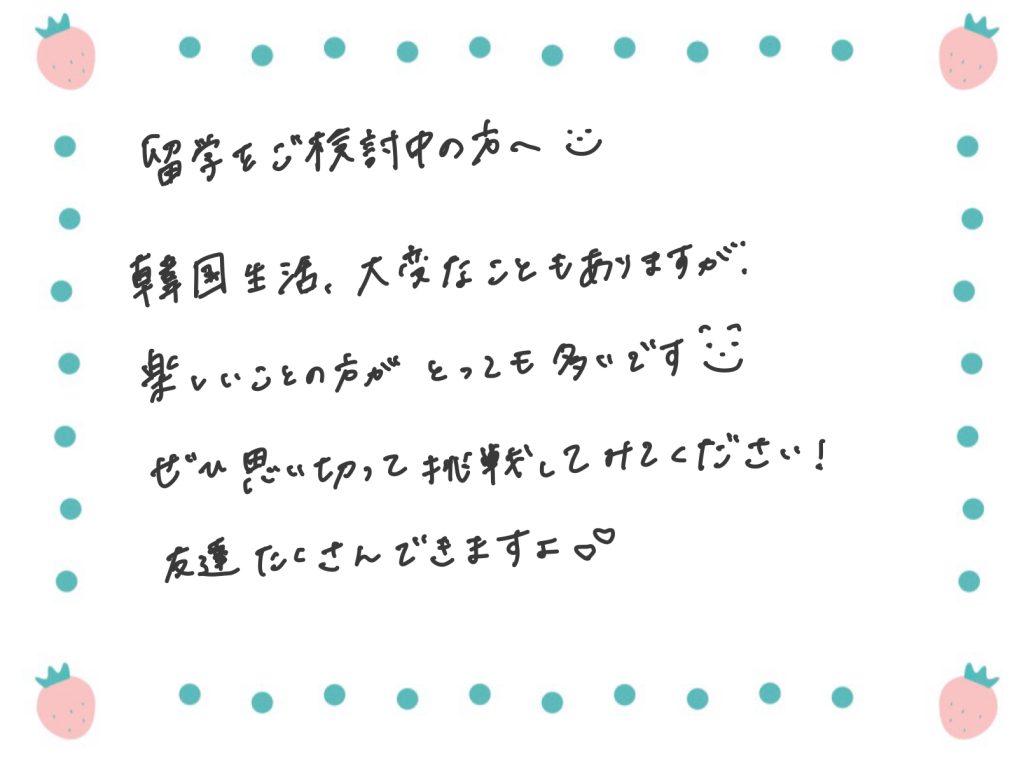 留学をご検討中の方へ
韓国生活、大変なこともありますが、
楽しいことの方がとっても多いです
ぜひ思い切って挑戦してみてください!
友達たくさんできますよ♡♡